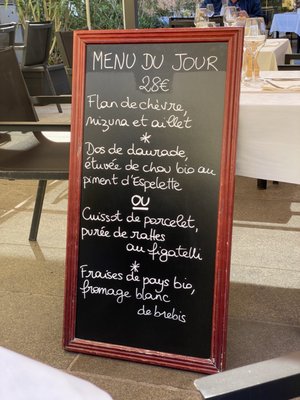 MENU DU JOUR
28€
Flan de chèvre,
mizuna et aillet
*
Dos de daurade,
étuvée de chou bio au
piment d'Espelette
OU
Cuissot de porcelet,
purée de rattes
au figatelli
*
Fraises de pays bio,
fromage blanc
de brebis